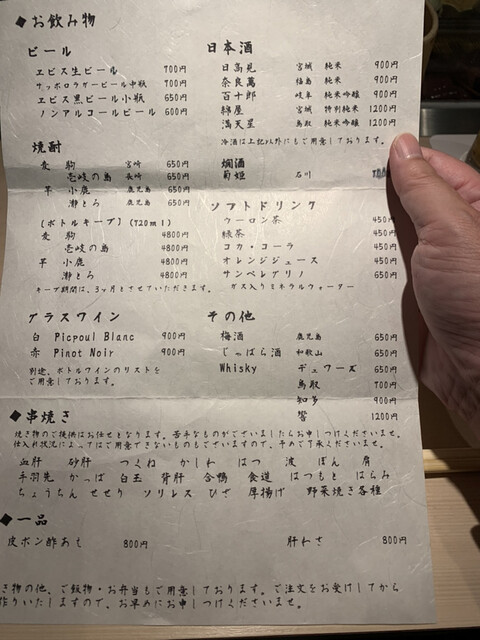 ◆お飲み物
ビール
ヱビス生ビール 700円
サッポロラガービール中瓶 700円
ヱビス黒ビール小瓶 650円
ノンアルコールビール 600円
日本酒
日高見 宮城 純米 900円
奈良萬 福島 純米 900円
百十郎 岐阜 純米吟醸 900円
綿屋 宮城 特別純米 1200円
満天星 鳥取 純米吟醸 1200円
冷酒は上記以外にもご用意しております。
焼酎
麦 駒 宮崎 650円
壱岐の島 長崎 650円
芋 小鹿 鹿児島 650円
灘とろ 鹿児島 650円
(ボトルキープ)(720ml)
麦 駒 4800円
壱岐の島 4800円
芋 小鹿 4800円
灘とろ 4800円
キープ期間は、3ヶ月とさせていただきます。
燗酒
菊姫 石川
ソフトドリンク
ウーロン茶 450円
緑茶 450円
コカ・コーラ 450円
オレンジジュース 450円
サンペレグリノ 650円
ガス入りミネラルウォーター
グラスワイン
白 Picpoul Blanc 900円
赤 Pinot Noir 900円
別途、ボトルワインのリストを
ご用意しております。
その他
梅酒 鹿児島 650円
じゃばら酒 和歌山 650円
Whisky デュワーズ 650円
鳥取 700円
知多 900円
響 1200円
◆串焼き
焼き物のご提供はお任せとなります。苦手なものがございましたらお申しつけくださいませ。
仕入れ状況によってはご用意できないものもございますので、予めご了承くださいませ。
血肝 砂肝 つくね かしわ はつ 波 ぼん 肩
手羽先 かっぱ 白玉 背肝 合鴨 食道 はつもと はらみ
ちょうちん せせり ソリレス ひざ 厚揚げ 野菜焼き各種
◆一品
皮ポン酢あえ 800円
肝わさ 800円
き物の他、ご飯物・お弁当もご用意しております。ご注文をお受けしてから
作りいたしますので、お早めにお申しつけくださいませ。